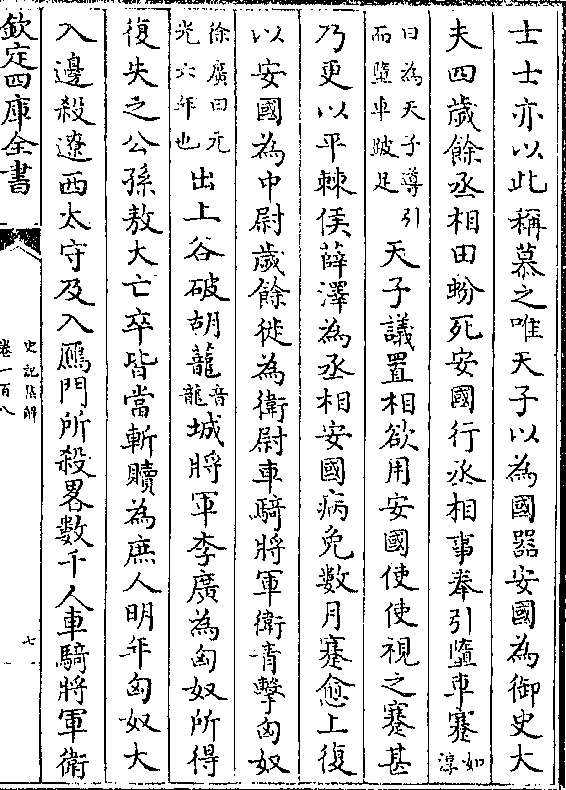 士士亦以此稱慕之唯天子以為國器安國為御史大
夫四歲餘丞相田蚡死安國行丞相事奉引墮車蹇如淳
曰為天子導引而墮車跛足天子議置相欲用安國使使視之蹇甚
乃更以平棘侯薛澤為丞相安國病免數月蹇愈上復
以安國為中尉歲餘徙為衛尉車騎將軍衛青擊匈奴
徐廣曰元光六年也出上谷破胡蘢音龍城將軍李廣為匈奴所得
復失之公孫敖大亡卒皆當斬贖為庶人明年匈奴大
入邊殺遼西太守及入鴈門所殺畧數千人車騎將軍衛
欽定四庫全書
史記集解
卷一百八
七